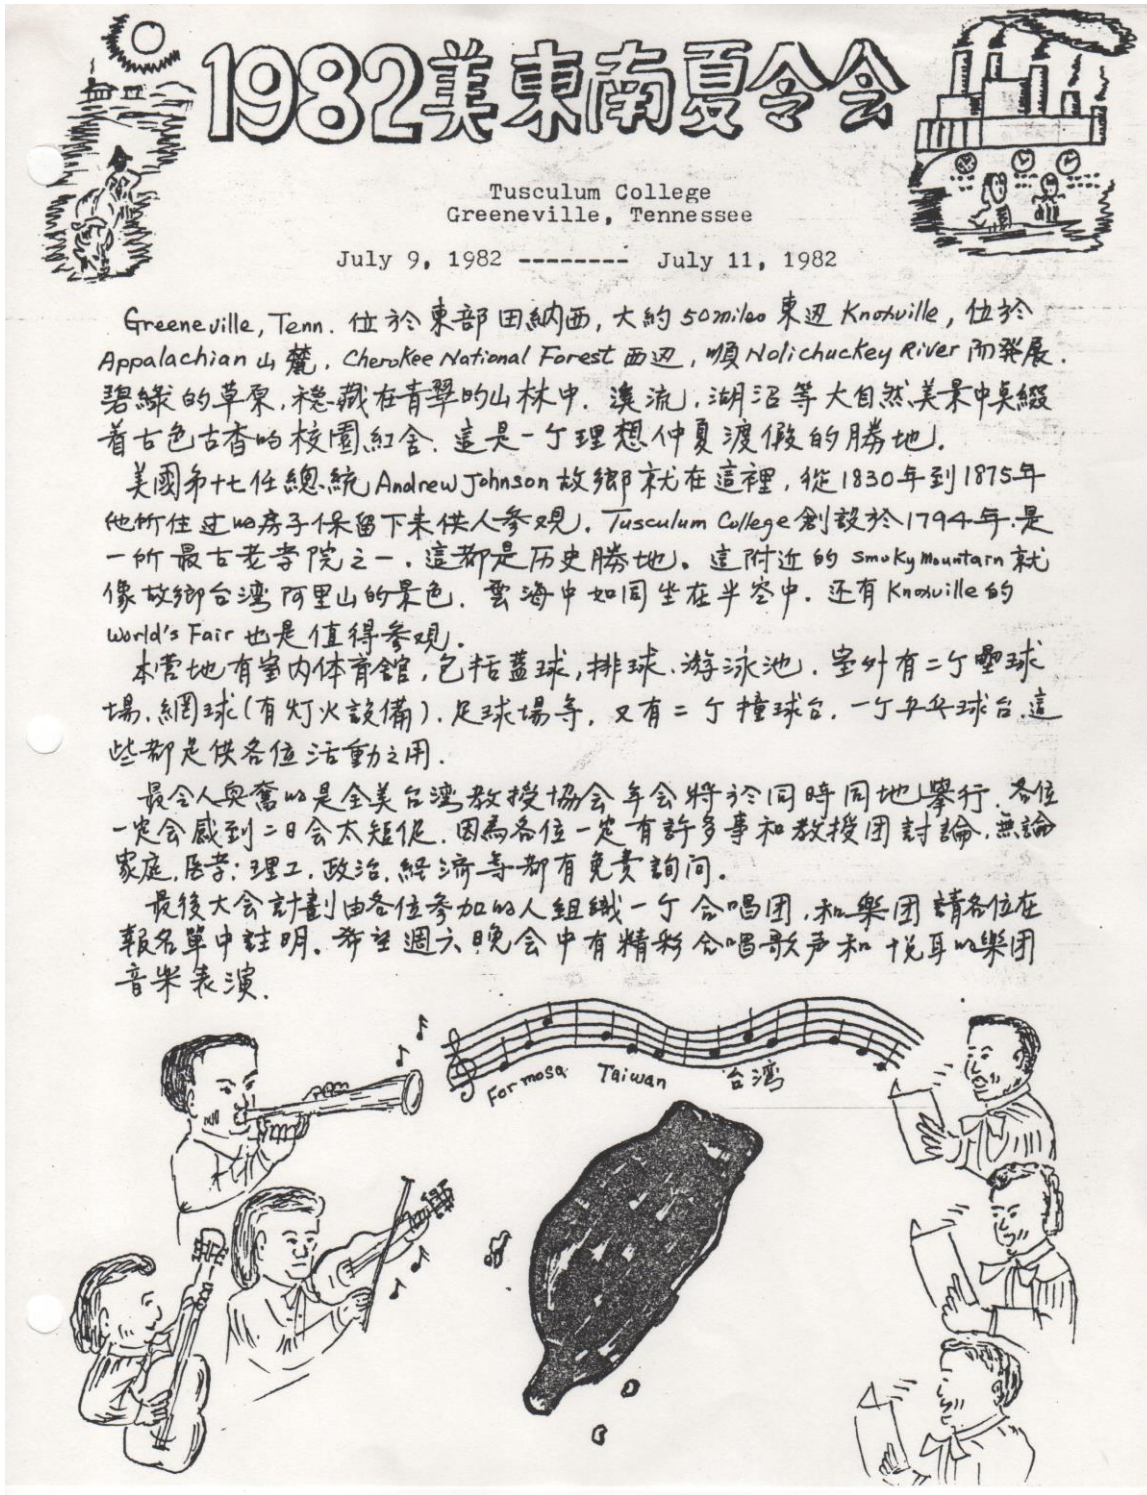 1982美東南夏令会
Tusculum College
Greeneville, Tennessee
July 9, 1982 -------- July 11, 1982
Greeneville, Tenn. 位於東部田納西，大約50miles東边Knoxville，位於
Appalachian山麓，Cherokee National Forest西边，順Nolichuckey River而發展．
碧綠的草原，穩藏在青翠的山林中．溪流，湖沼等大自然美景中奌綴
着古色古香的校園紅舍．這是一个理想仲夏渡假的勝地．
美國第十七任總統Andrew Johnson故鄉就在這裡，從1830年到1875年
他所住过的房子保留下来供人參观．Tusculum College創設於1794年．是
一所最古老学院之一．這都是历史勝地。這附近的Smoky Mountain就
像故鄉台湾阿里山的景色．雲海中如同坐在半空中．还有Knoxville的
World's Fair也是值得參观．
本营地有室内体育舘，包括蓝球，排球．游泳池．室外有二个壘球
場．網球(有灯火設備)．足球場等，又有二个撞球台．一个乒乓球台．這
些都是供各位活動之用．
最令人興奮的是全美台湾教授協会年会將於同時同地舉行．各位
一定会感到二日会太短促．因為各位一定有許多事和教授团討論．無論
家庭．医学；理工．政治．経済等都有免責詢问。
最後大会計劃由各位參加的人組織一个合唱团，和樂团請各位在
報名單中註明．希望週六晚会中有精彩合唱歌声和悦耳的樂团
音楽表演．
Formosa Taiwan 台湾